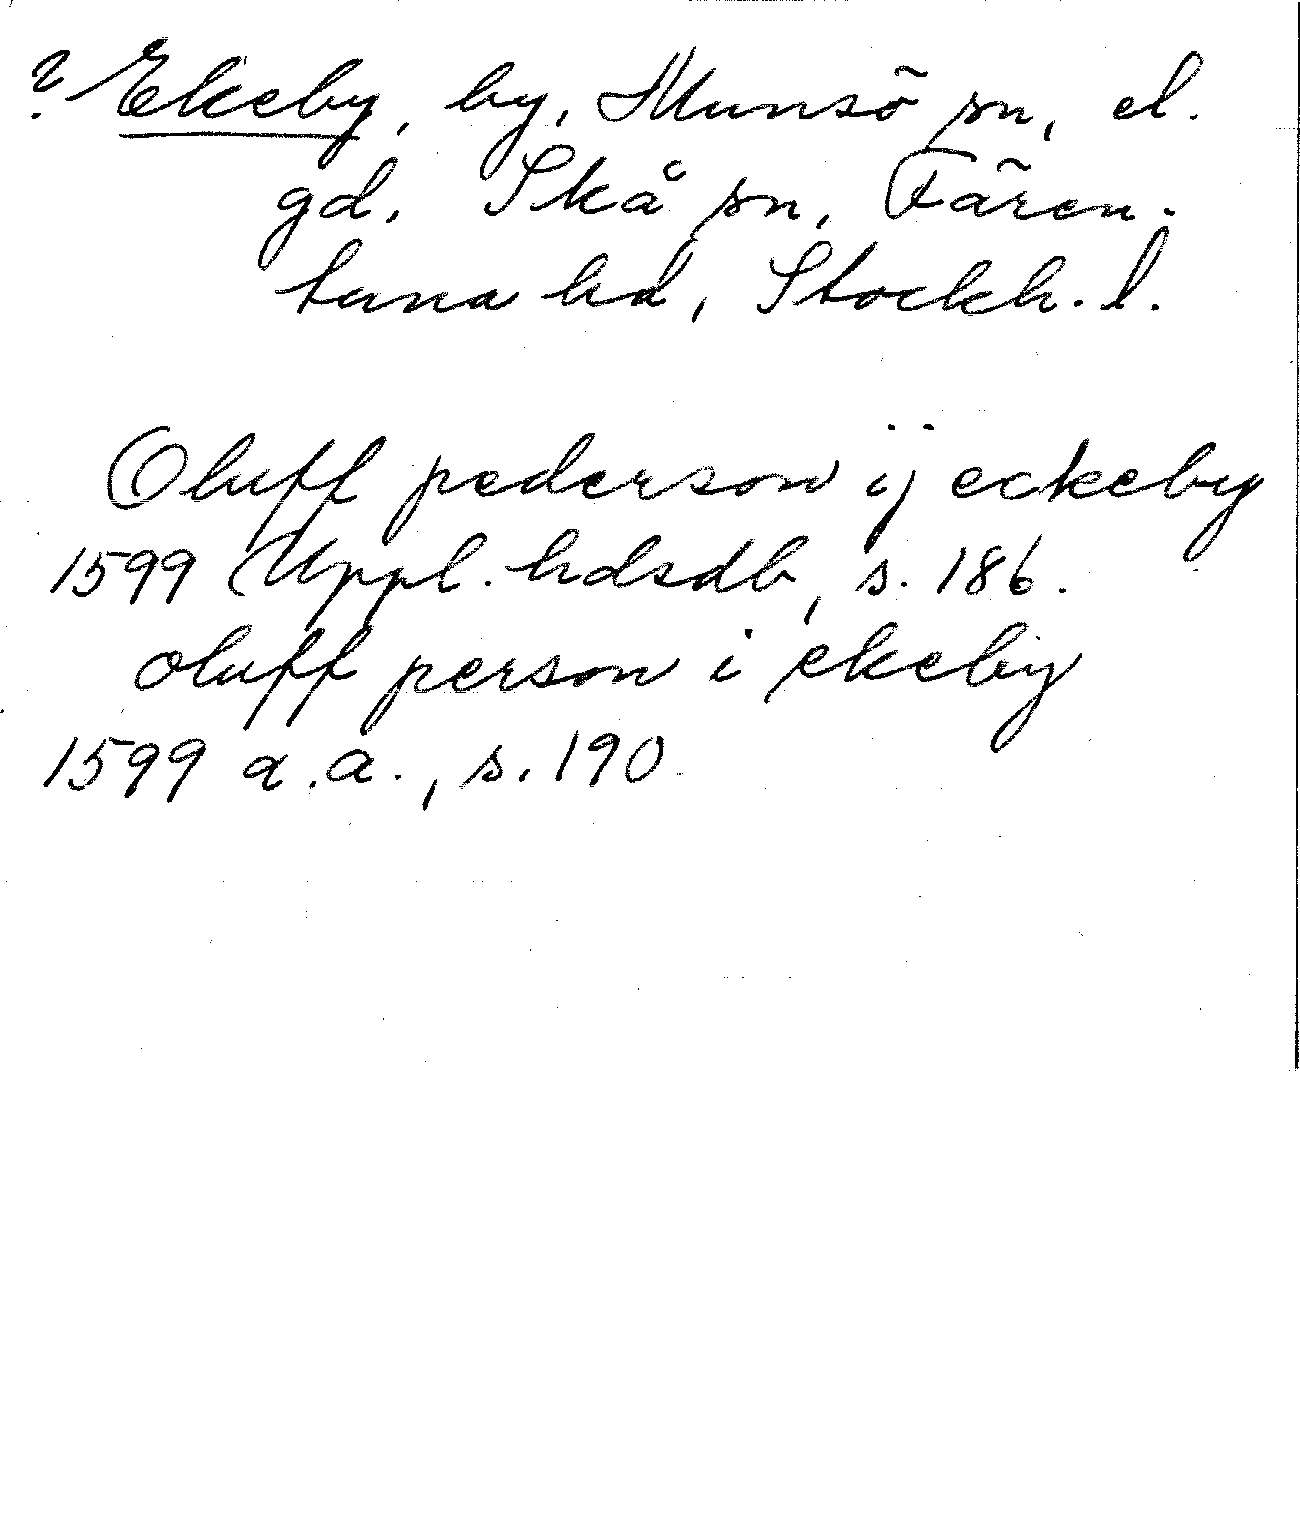 ? Ekeby, by, Munsö sn, el.
gd, Skå sn, Fären-
tuna hd, Stockh. l.
Oluff pederson ij eckeby
1599 Uppl. hdsdb, s. 186.
oluff person i ekeby
1599 a.a., s. 190